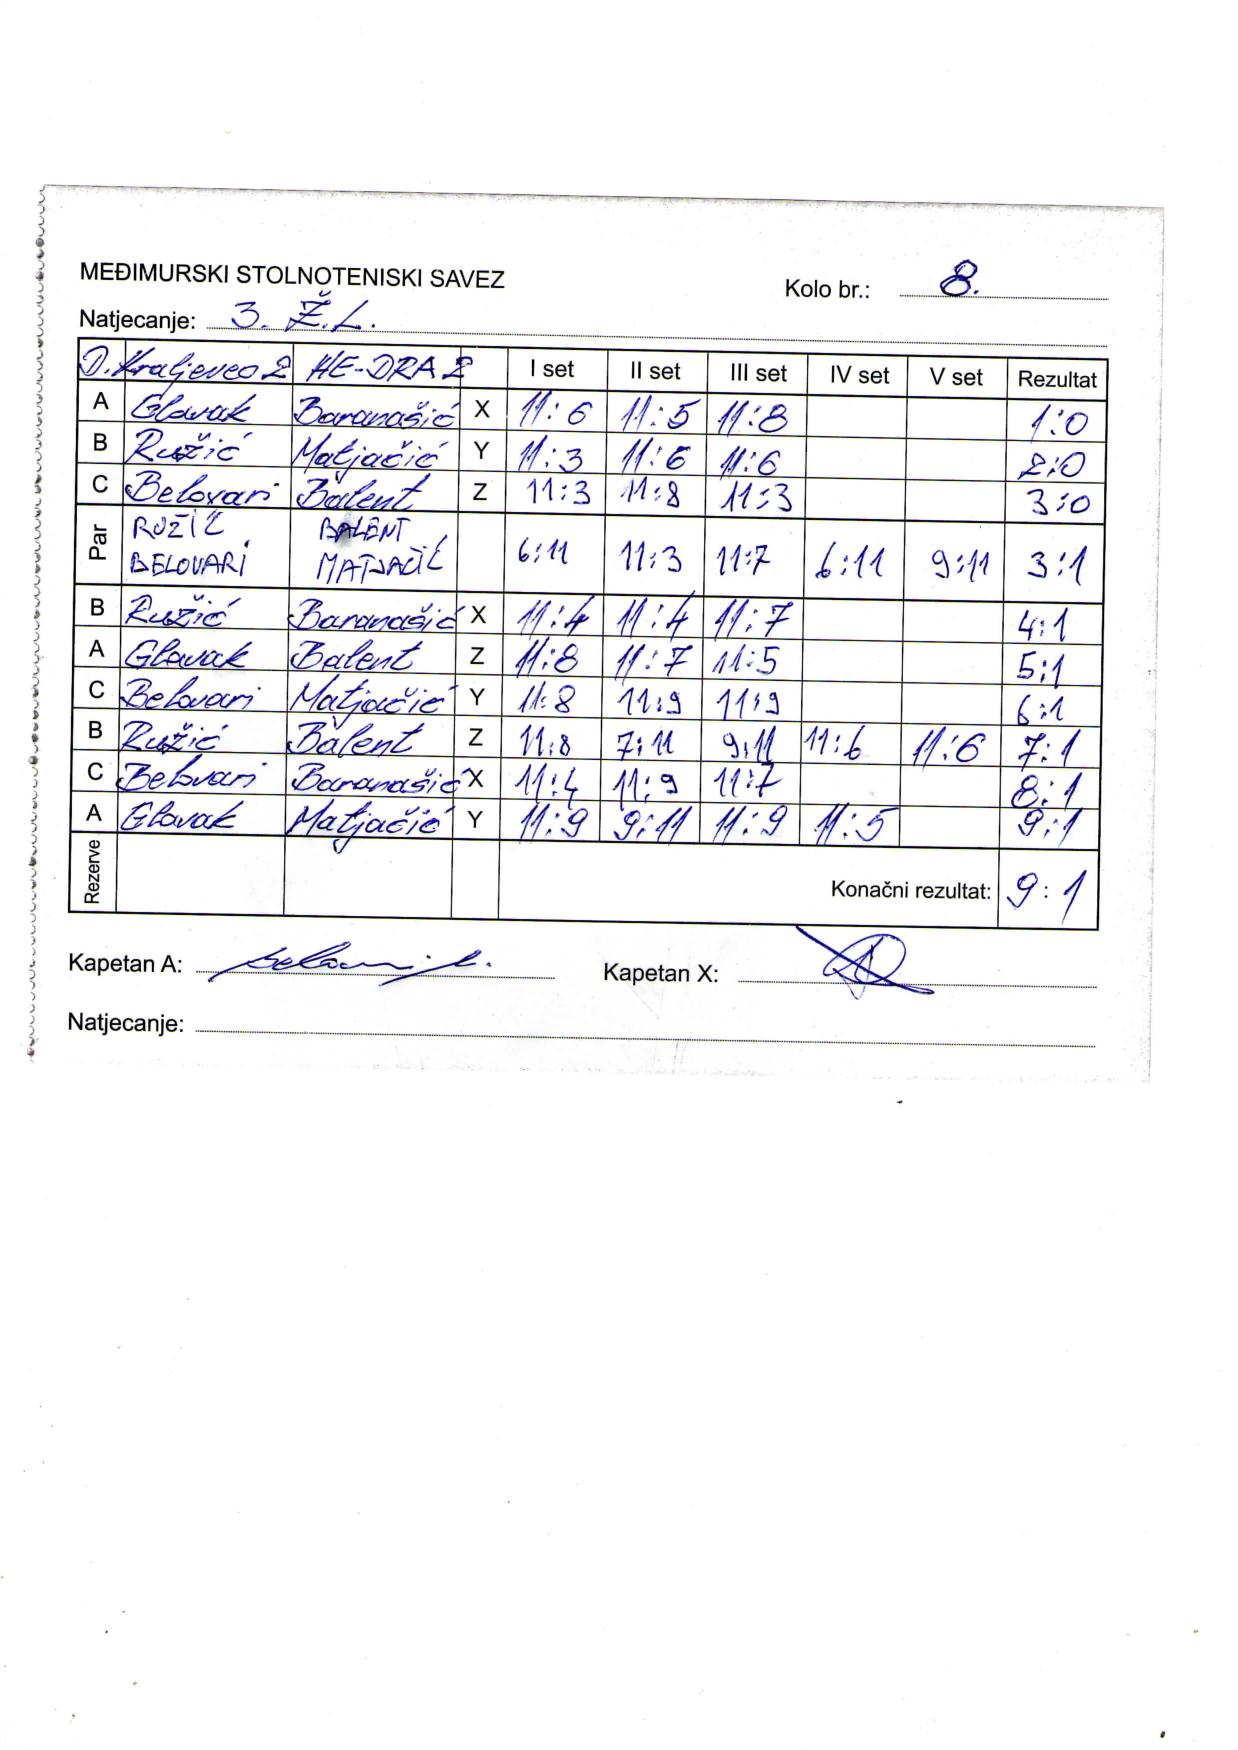 MEĐIMURSKI STOLNOTENISKI SAVEZ
Kolo br.: 8.
Natjecanje: 3. Ž.L.
D. Kraljevec 2 HE-DRA 2 I set II set III set IV set V set Rezultat
A Glavak Baranašić X 11:6 11:5 11:8 1:0
B Ružić Matjačić Y 11:3 11:6 11:6 2:0
C Belovari Balent Z 11:3 11:8 11:3 3:0
Par RUŽIĆ BALENT 6:11 11:3 11:7 6:11 9:11 3:1
BELOVARI MATJAČIĆ
B Ružić Baranašić X 11:4 11:4 11:7 4:1
A Glavak Balent Z 11:8 11:7 11:5 5:1
C Belovari Matjačić Y 11:8 11:9 11:9 6:1
B Ružić Balent Z 11:8 7:11 9:11 11:6 11:6 7:1
C Belovari Baranašić X 11:4 11:9 11:7 8:1
A Glavak Matjačić Y 11:9 9:11 11:9 11:5 9:1
Rezerve Konačni rezultat: 9:1
Kapetan A: Kapetan X:
Natjecanje: